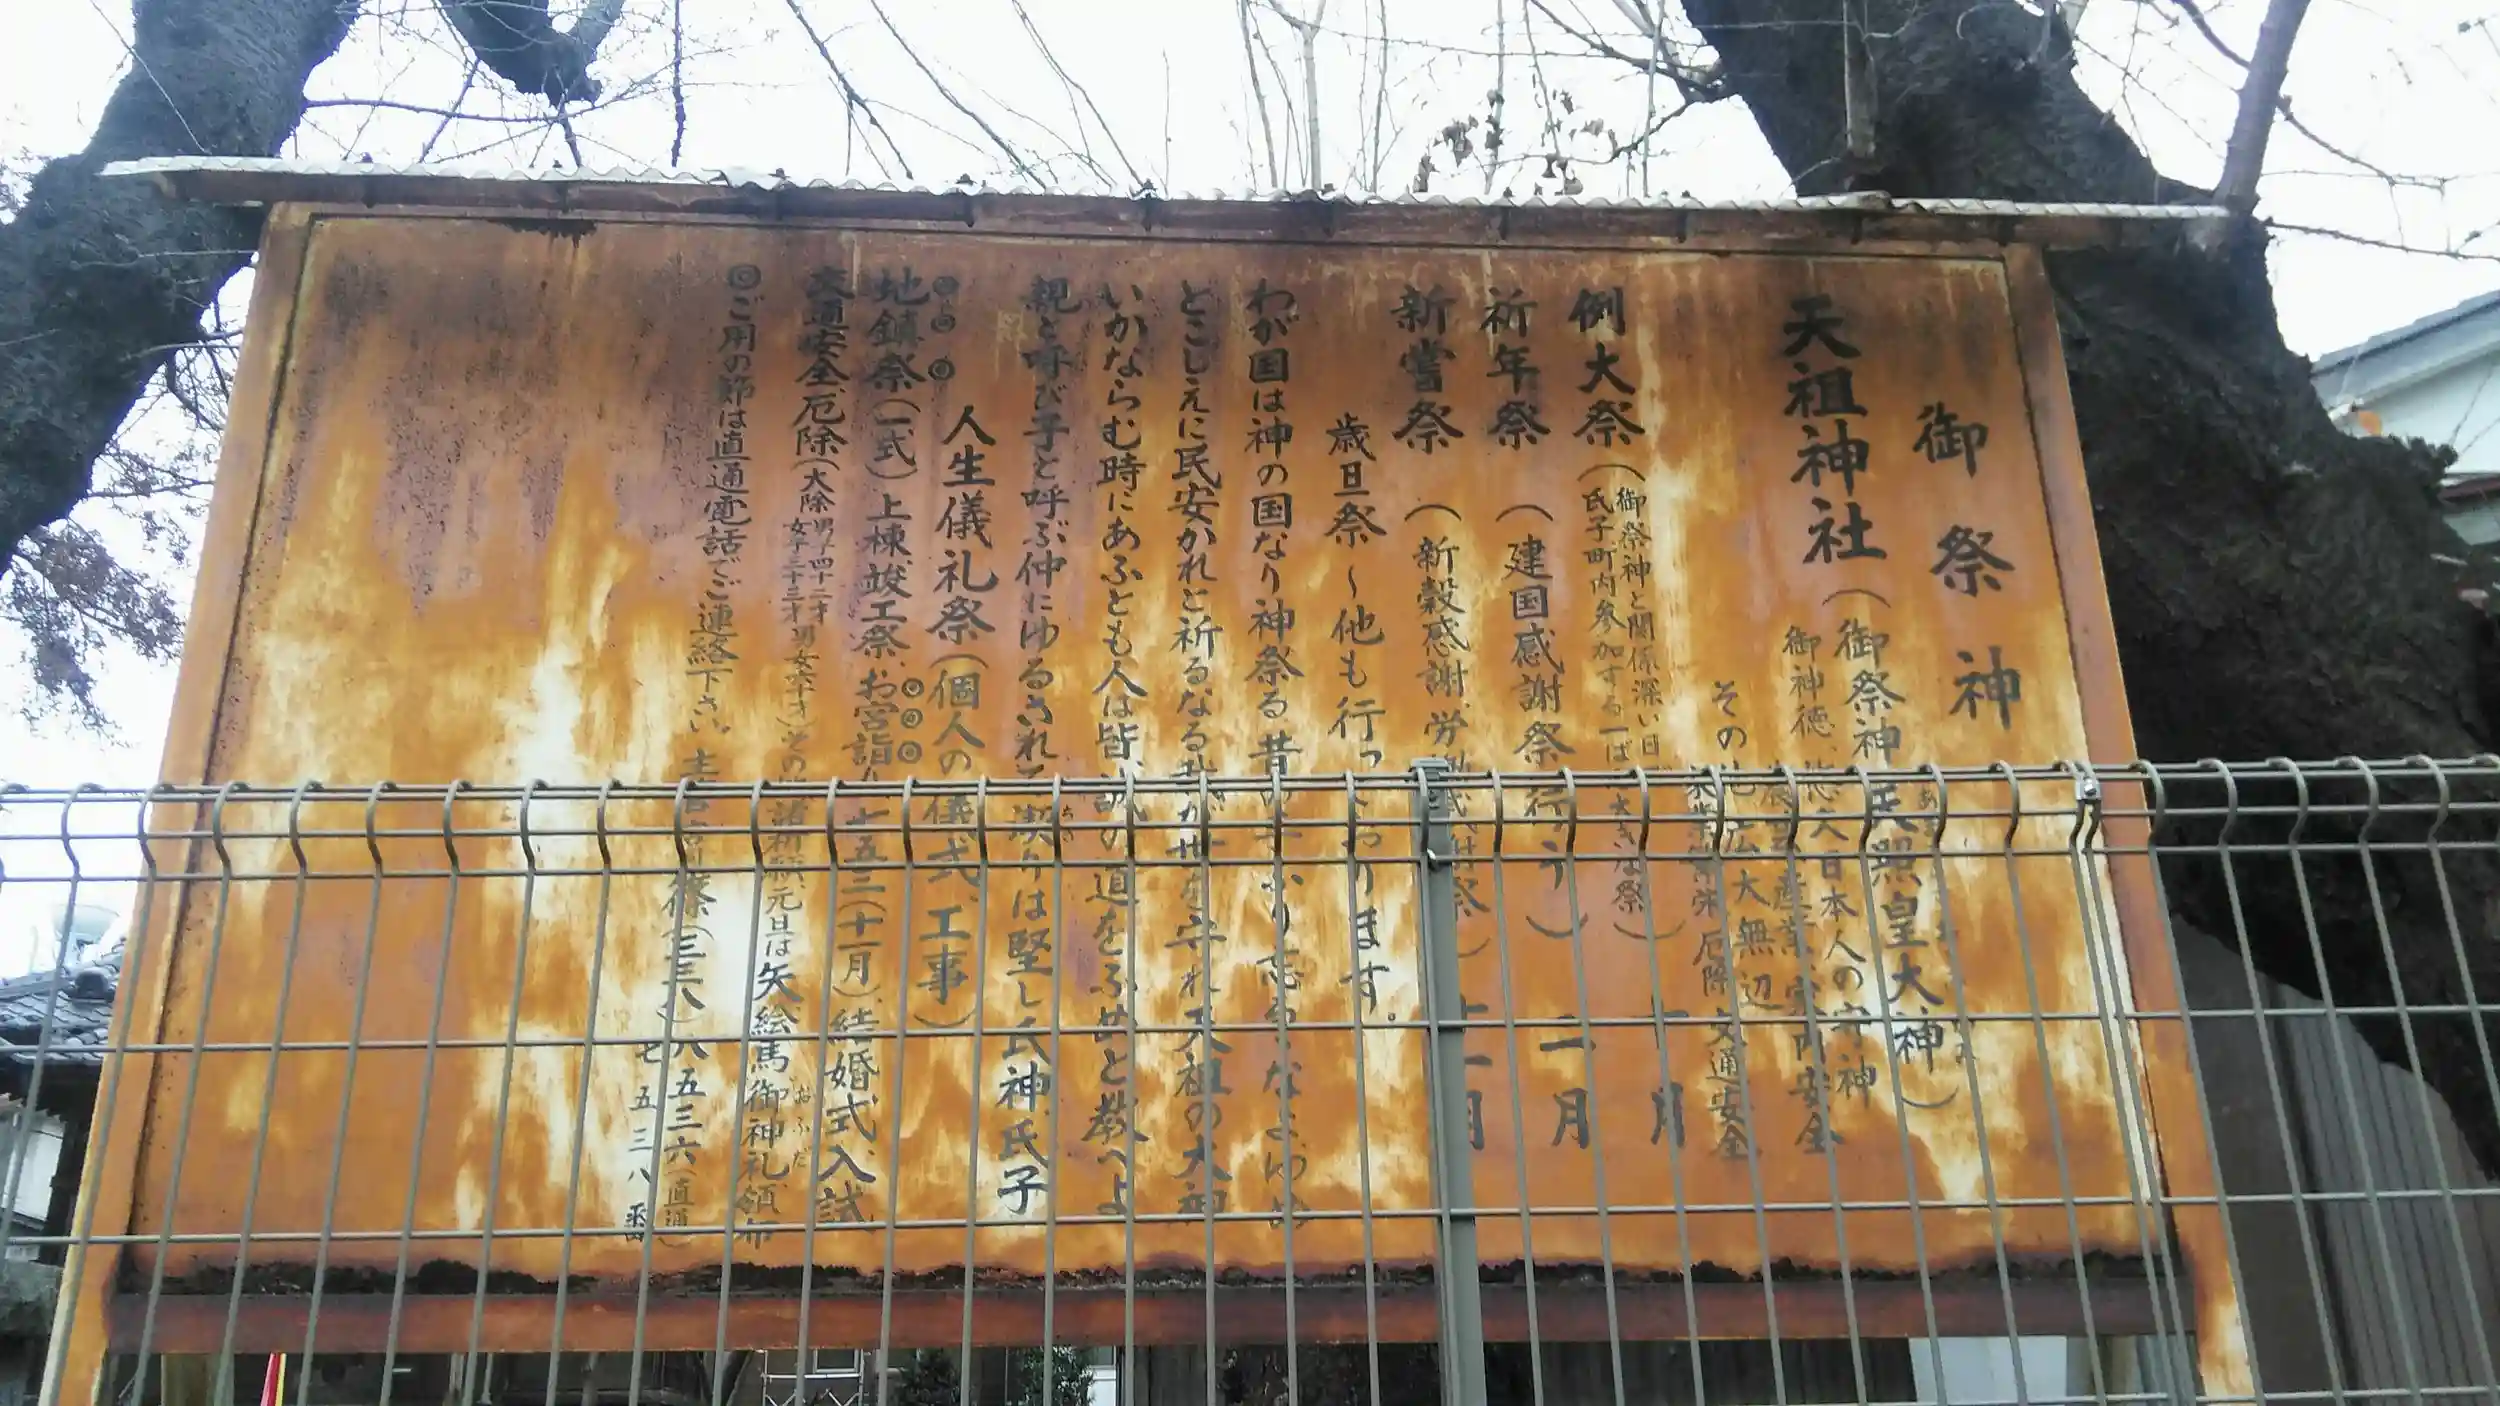 御祭神
天祖神社（御祭神 天照皇大神）
御神徳、悠久日本人の守神
農業、産業、家内安全
その他広大無辺
栄 厄除 交通安全
例大祭（御祭神と関係深い日
氏子町内参加する一ば 大きな祭）
月
祈年祭（建国感謝祭行う）二月
新嘗祭（新穀感謝、労 祭）十一月
歳旦祭〜他も行っております。
わが国は神の国なり神祭る昔の手ぶり忘るなよゆめ
とこしえに民安かれと祈るなるわが世を守れ天祖の大神
いかならむ時にあふとも人は皆、誠の道をふめと教へよ
親と呼び子と呼ぶ仲にゆるされて 契りは堅し氏神、氏子
◎◎◎人生儀礼祭（個人の儀式、工事）
地鎮祭（一式）上棟、竣工祭、お宮詣り、七五三（十一月）、結婚式、入試、
交通安全、厄除（大除 男子四十二才
女子三十三才 男女六十才）その 諸祈願、元旦は矢、絵馬、御神札 おふだ 頒布
◎ご用の節は直通電話でご連絡下さい。 條（三三八）八五三六（直通）
七五三八番